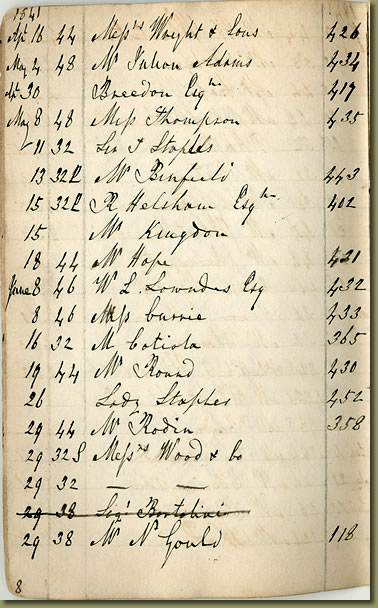 1841
Apl 16 44 Messrs Wright & Sons 426
May 4 48 Mr Julian Adams 434
Apl 30 Breedon Esqre 417
May 8 48 Miss Thompson 435
11 32 Sir T Staples
13 32P Mr Binfield 443
15 32P R Helsham Esqre 402
15 Mr Kingdon
18 44 Mr Hope 421
June 8 46 W L Lowndes Esq 432
8 46 Miss Currie 433
16 32 M Cotiola 365
19 44 Mr Round 430
26 Lady Staples 452
29 44 Mr Rodin 358
29 32S Messrs Wood & Co
29 32 — —
29 38 Sigr Bortolini
29 38 Mr N Gould 118
8